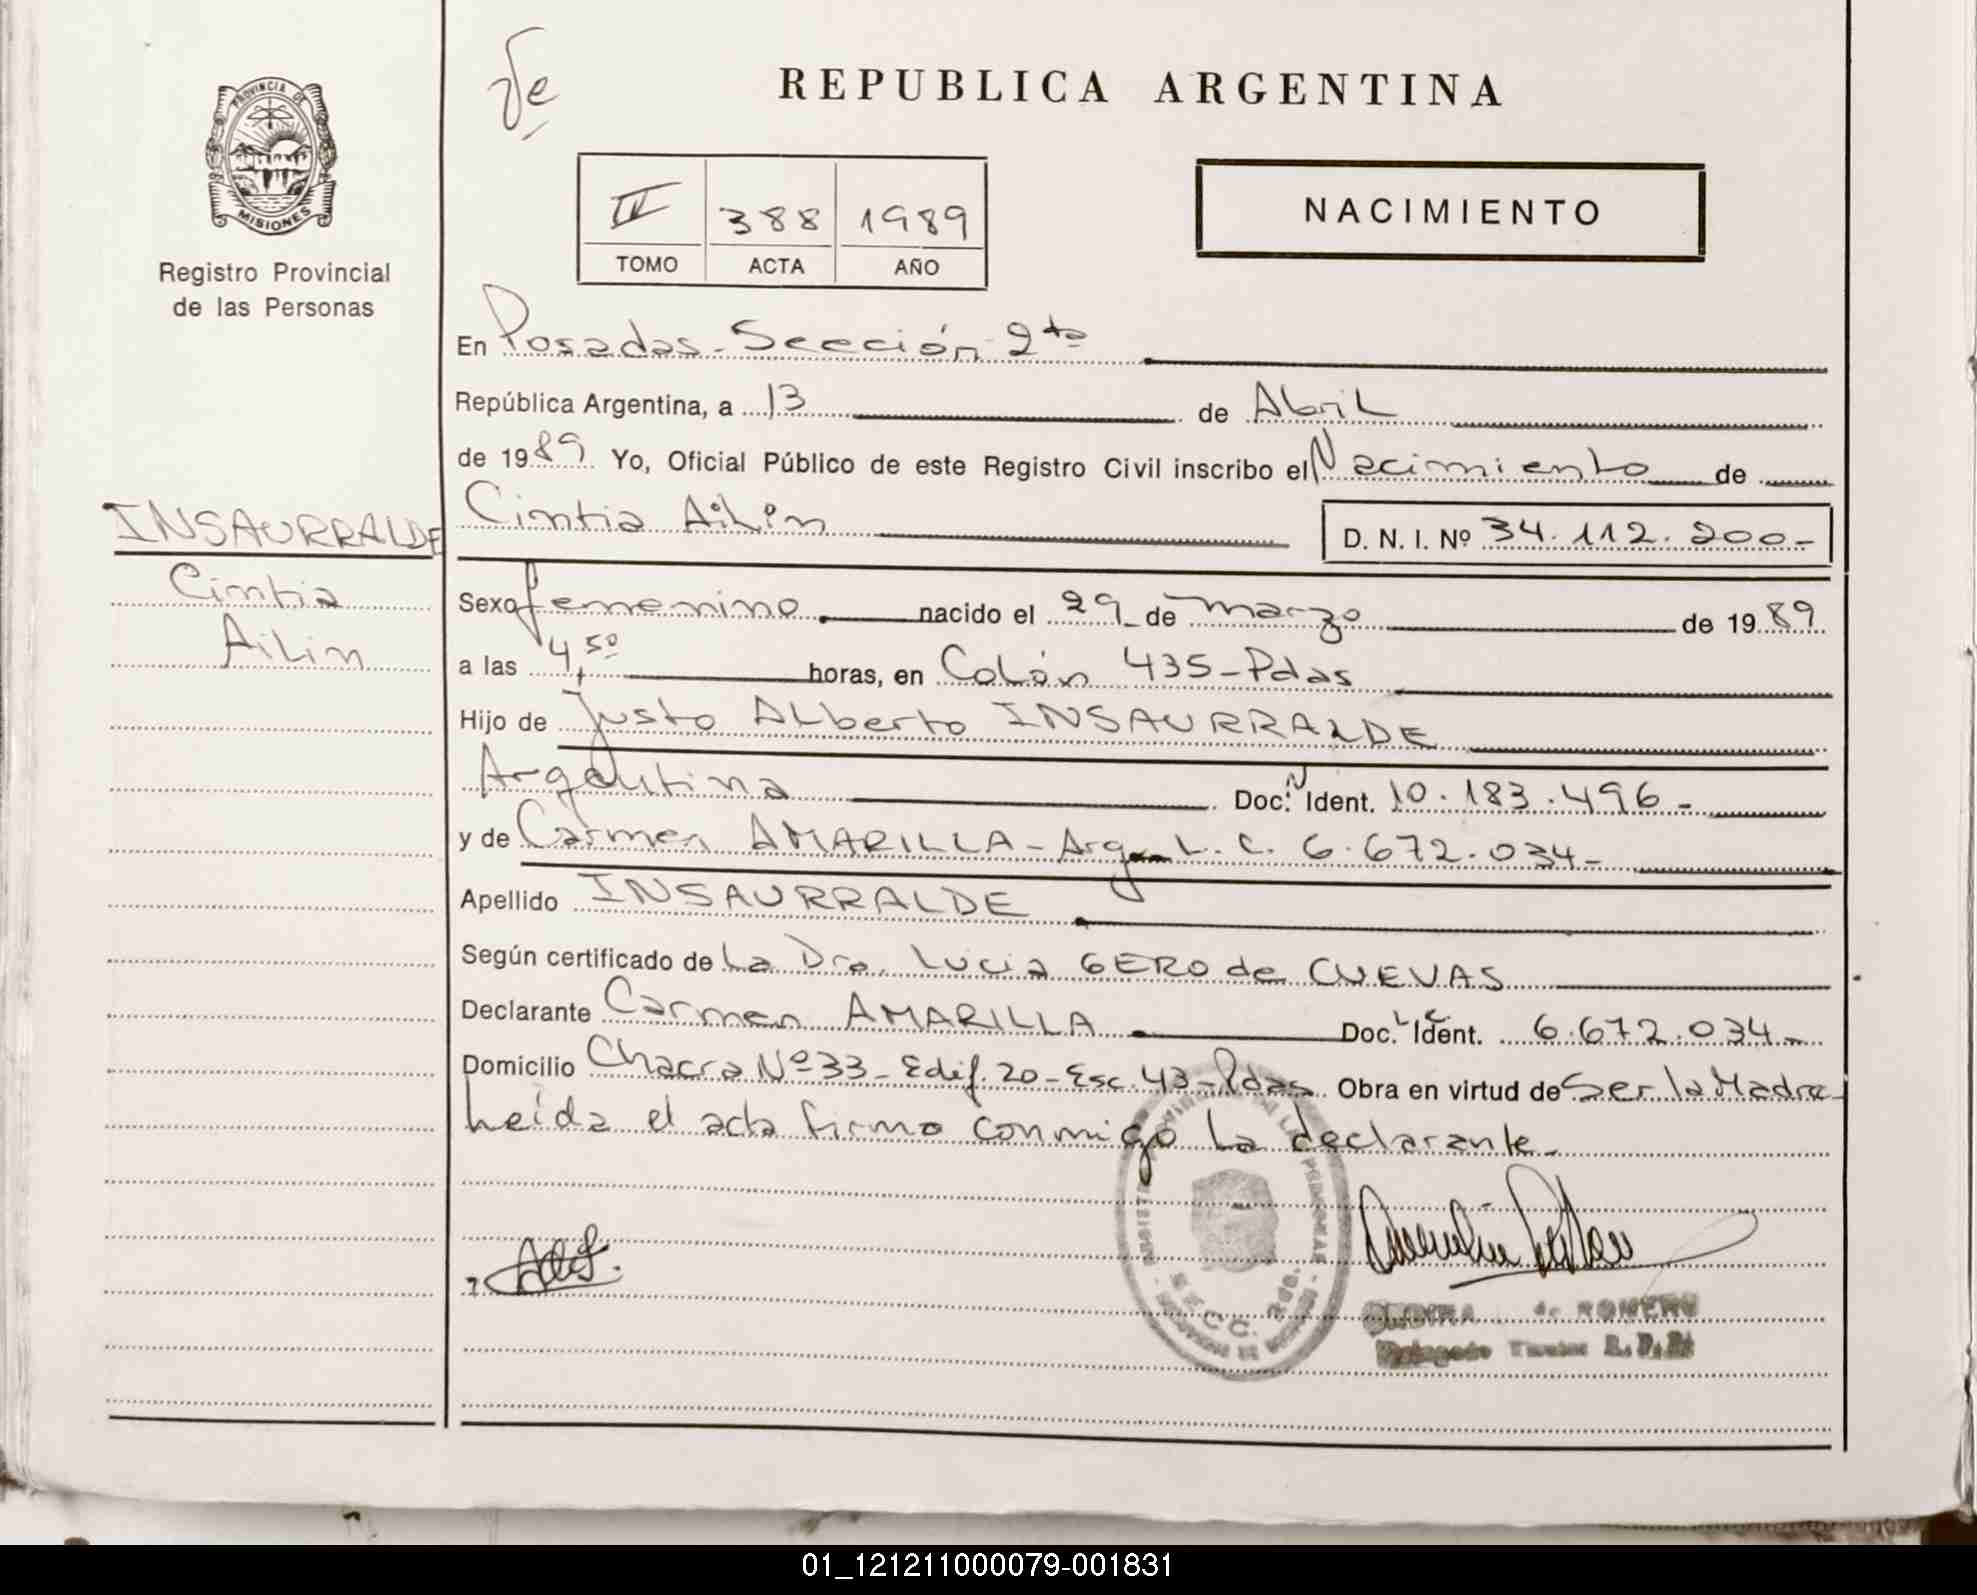 Ve
REPUBLICA ARGENTINA
PROVINCIA DE
MISIONES
Registro Provincial
de las Personas
IV 388 1989
TOMO ACTA AÑO
NACIMIENTO
En Posadas - Sección 2ta
República Argentina, a 13 de Abril
de 1989 Yo, Oficial Público de este Registro Civil inscribo el Nacimiento de
Cintia Ailin D. N. I. Nº 34.112.200-
INSAURRALDE
Cintia
Ailin
Sexo femenino nacido el 29 de marzo de 1989
a las 4,50 horas, en Colón 435 - Pdas
Hijo de Justo Alberto INSAURRALDE
Argentina Doc. N Ident. 10.183.496-
y de Carmen AMARILLA - Arg L. C. 6.672.034-
Apellido INSAURRALDE
Según certificado de La Dra. Lucia GERO de CUEVAS
Declarante Carmen AMARILLA Doc. L C Ident. 6.672.034-
Domicilio Chacra Nº 33 - Edif. 20 - Esc. 43 - Pdas Obra en virtud de Ser la Madre-
Leída el acta firmo conmigo la declarante-
SECC. 2da.
de ROMERO
01_121211000079-001831